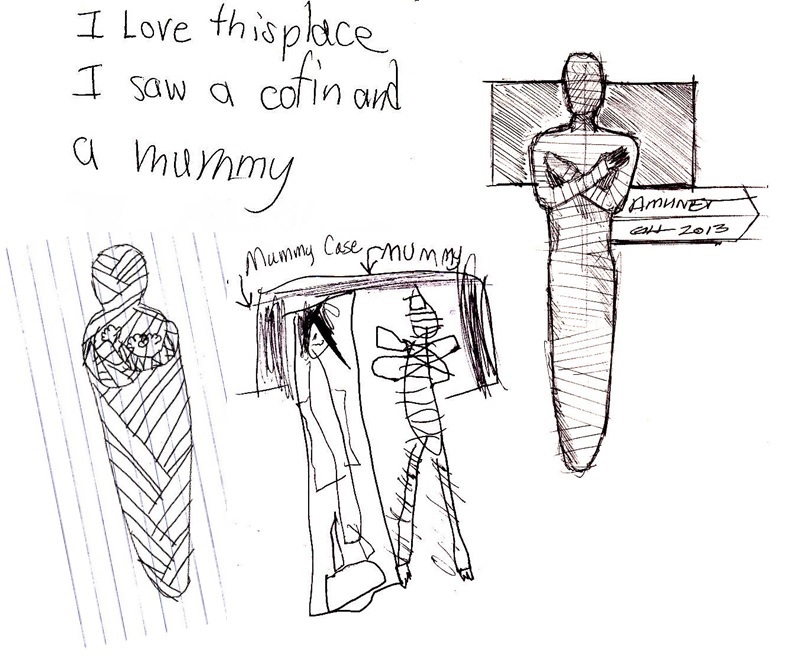 I Love thisplace
I saw a cofin and
a mummy
Mummy Case
MUMMY
AMUNET
2013